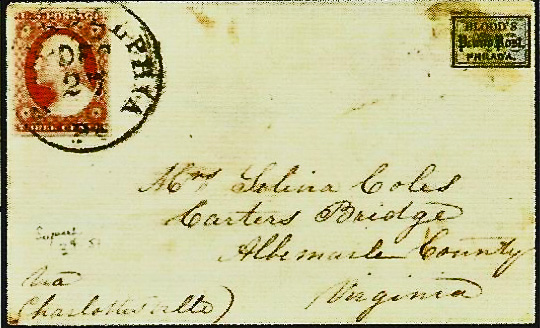 U.S. POSTAGE
THREE CENTS
DELPHIA
DEC
27
BLOOD'S
Penny Post
PHILADA.
Mrs Selina Coles
Carters Bridge
Albemarle County
Virginia
Via
Charlottesville)